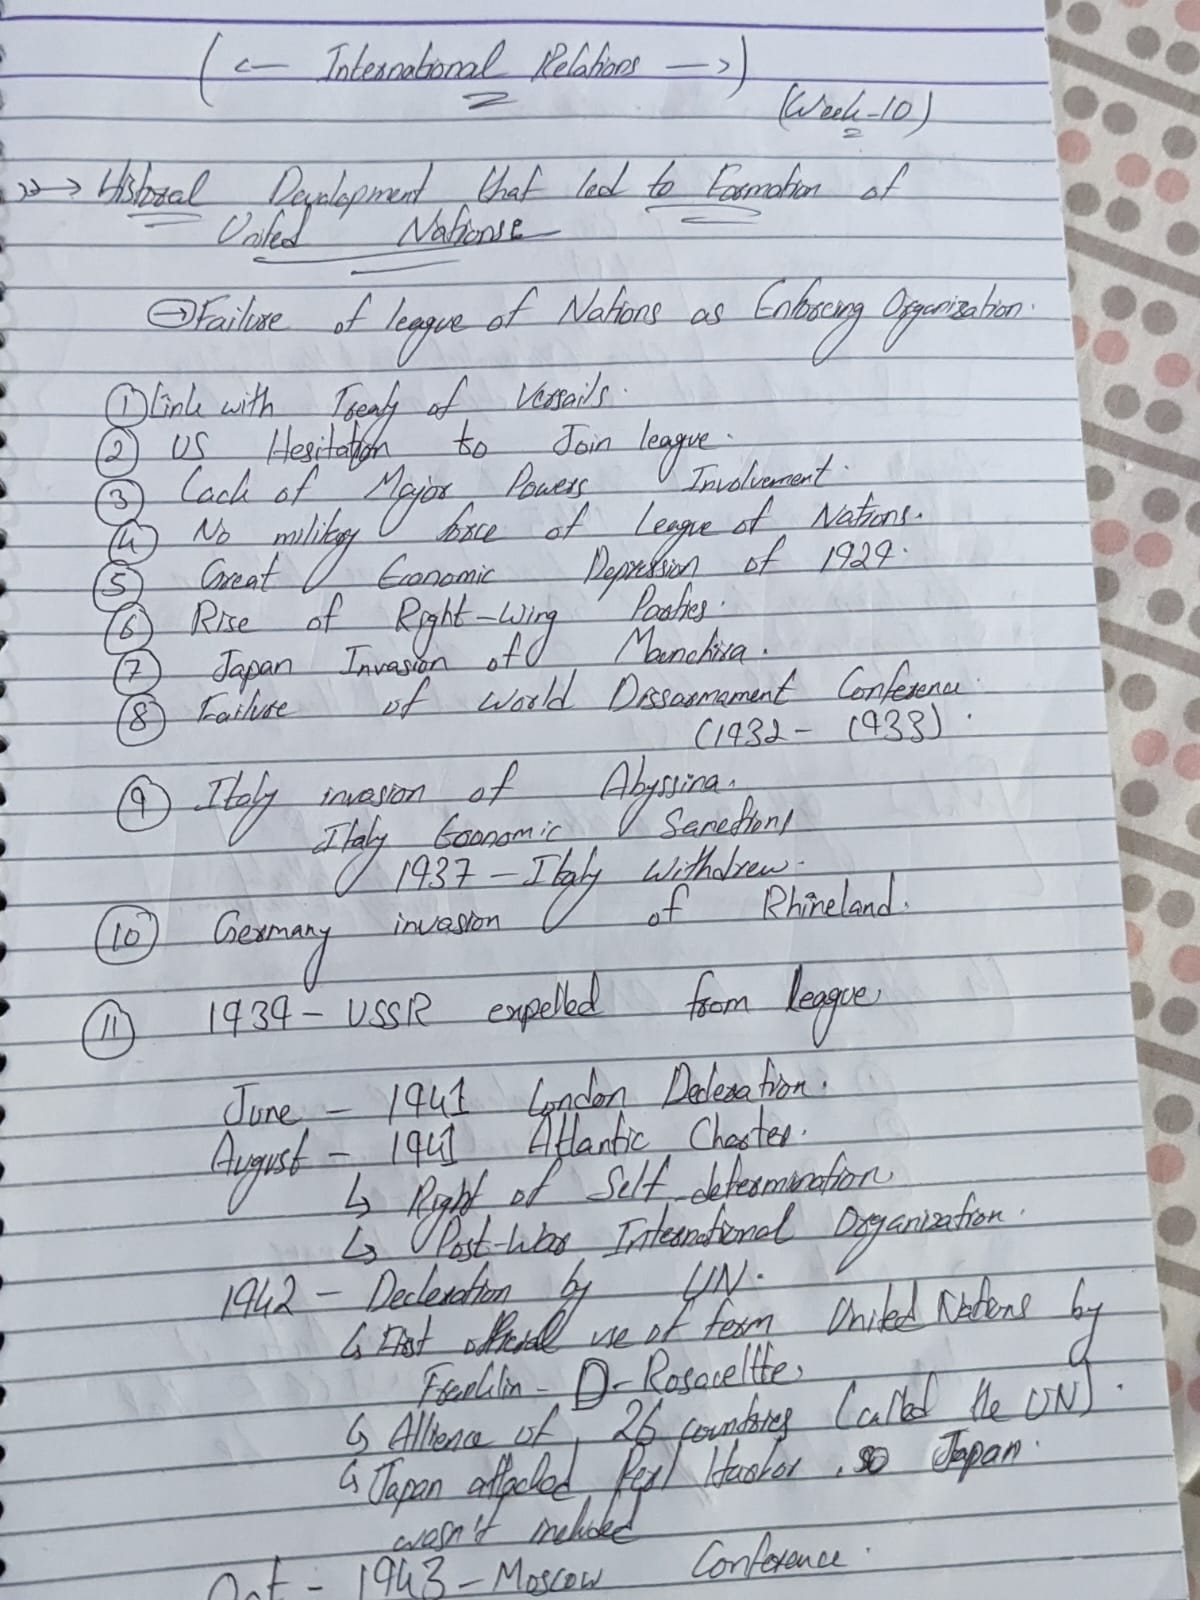 (<— International Relations —>)
(Week-10)
>>→ Historal Development that led to Formation of
United Nationse
→ Failure of league of Nations as Enforcing Organization.
① Link with Treaty of Versails.
② US Hesitation to Join league.
③ Lack of Major Powers Involvement.
④ No military force of League of Nations.
⑤ Great Economic Depression of 1929.
⑥ Rise of Right-Wing Parties.
⑦ Japan Invasion of Manchira.
⑧ Failure of World Dissarmament Conference
(1932 - 1933).
⑨ Italy invasion of Abyssina.
Italy Economic Sanctions
1937 - Italy Withdrew.
⑩ Germany invasion of Rhineland.
⑪ 1939 - USSR expelled from league.
June - 1941 London Decleration.
August - 1941 Atlantic Charter.
↳ Right of Self determination.
↳ Post-War International Organization.
1942 - Decleration by UN.
↳ First official use of term United Nations by
Franklin - D - Rosacellte.
↳ Allience of 26 countries (called the UN).
↳ Japan attacked Perl Harbor, so Japan.
wasn't included
Oct - 1943 - Moscow Conference.